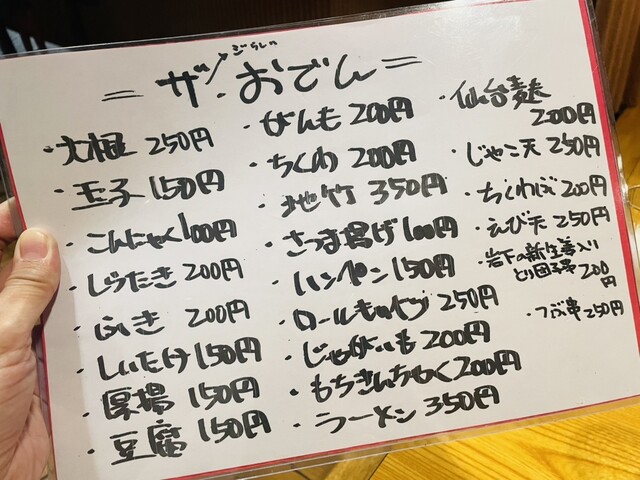 = ザ・おでん =
・大根 250円
・玉子 150円
・こんにゃく 100円
・しらたき 200円
・ふき 200円
・しいたけ 150円
・厚揚 150円
・豆腐 150円
・がんも 200円
・ちくわ 200円
・地竹 350円
・さつま揚げ 100円
・ハンペン 150円
・ロールキャベツ 250円
・じゃがいも 200円
・もちきんちゃく 200円
・ラーメン 350円
・仙台麩
200円
・じゃこ天 250円
・ちくわぶ 200円
・えび天 250円
・岩下の新生姜入り
とり団子串 200
円
・つぶ串 250円